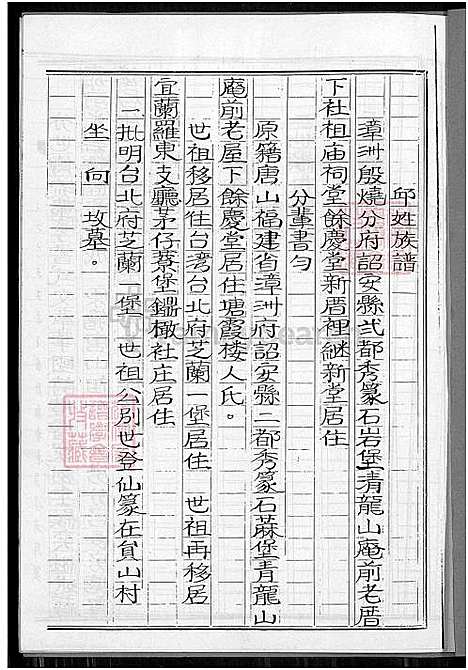 邱姓族譜
漳洲殷燒分府詔安縣弍都秀篆石岩堡清龍山庵前老厝
下社祖庙祠堂餘慶堂新厝裡継新堂居住
分輩書勻
原籍唐山福建省漳洲府詔安縣二都秀篆石蔴堡青龍山
庵前老屋下餘慶堂居住塘霞楼人氏。
世祖移居住台湾台北府芝蘭一堡居住 世祖再移居
宜蘭羅東支廳茅仔藔堡鼎橄社庄居住
一批明台北府芝蘭一堡 世祖公別世登仙篆在貟山村
坐向 坟墓。